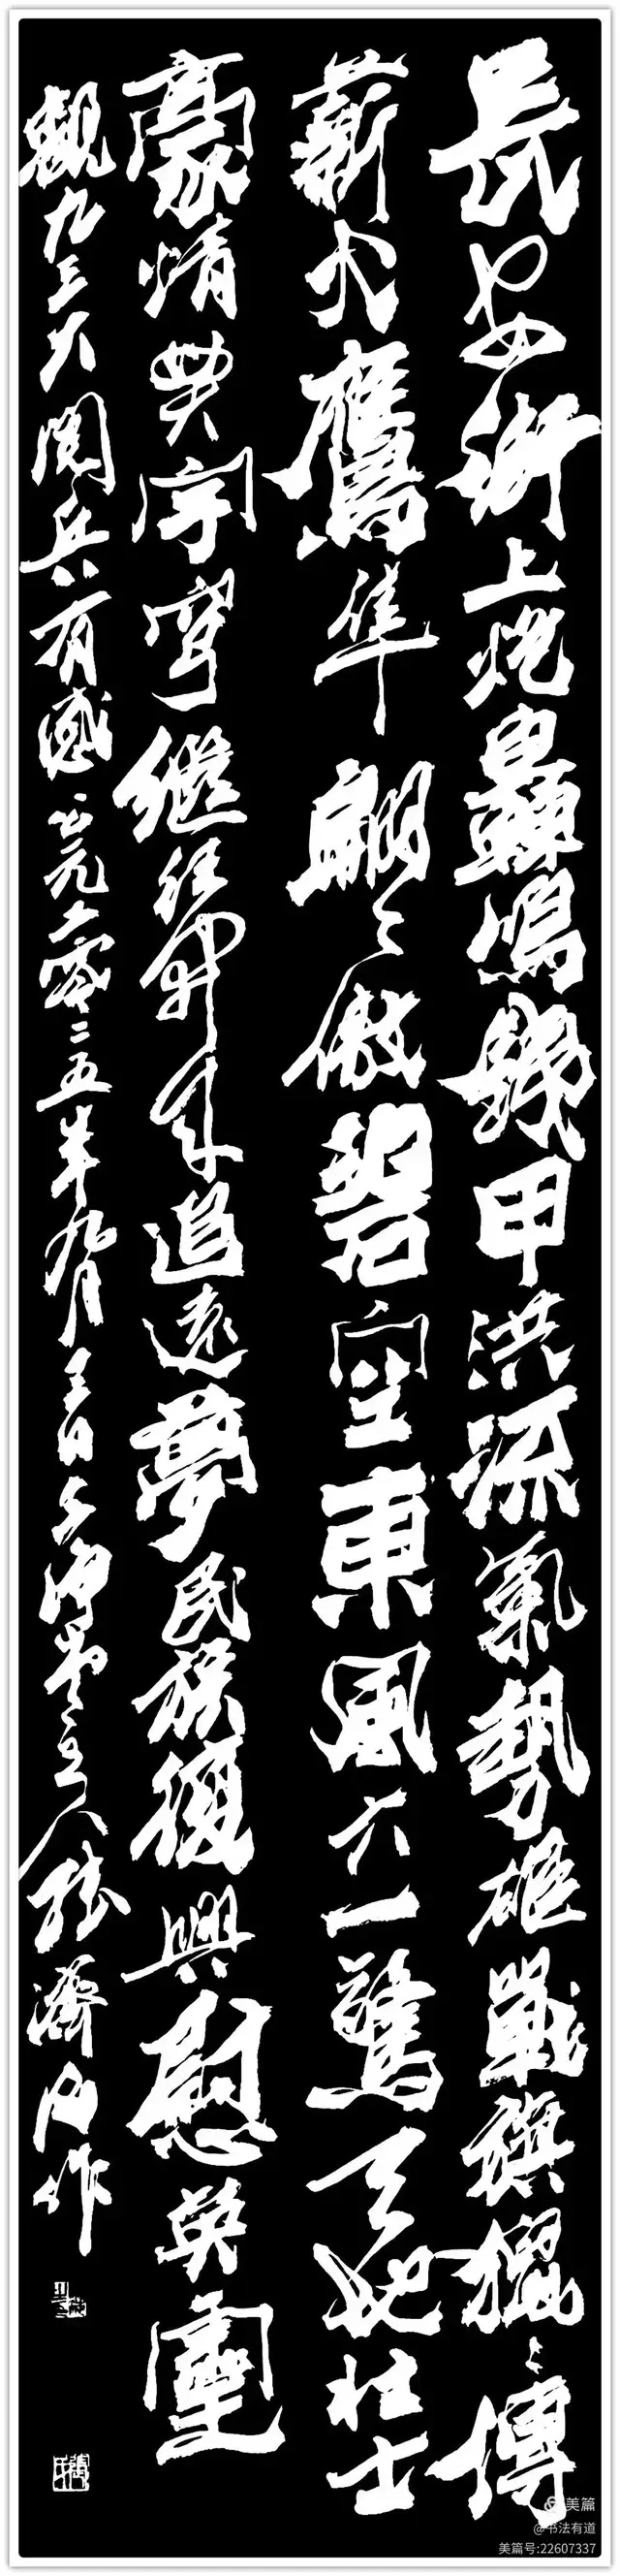 長安街上炮轟鳴鐵甲洪流氣勢雄戰旗獵〻傳
薪火鷹隼翩〻傲碧空東風六一驚天地壮士
豪情貫宇穹繼往開來追遠夢民族復興慰英靈
觀九三大閱兵有感公元二零二五年九月三日堂主人張濟作
美篇
@书法有道
美篇号:22607337